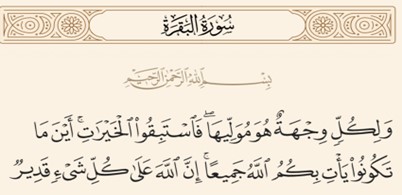 سُورَةُ البَقَرَةِ
بِسْمِ اللَّهِ الرَّحْمَٰنِ الرَّحِيمِ
وَلِكُلٍّ وِجْهَةٌ هُوَ مُوَلِّيهَا ۖ فَاسْتَبِقُوا۟ الْخَيْرَٰتِ ۚ أَيْنَ مَا
تَكُونُوا۟ يَأْتِ بِكُمُ اللَّهُ جَمِيعًا ۚ إِنَّ اللَّهَ عَلَىٰ كُلِّ شَىْءٍ قَدِيرٌ